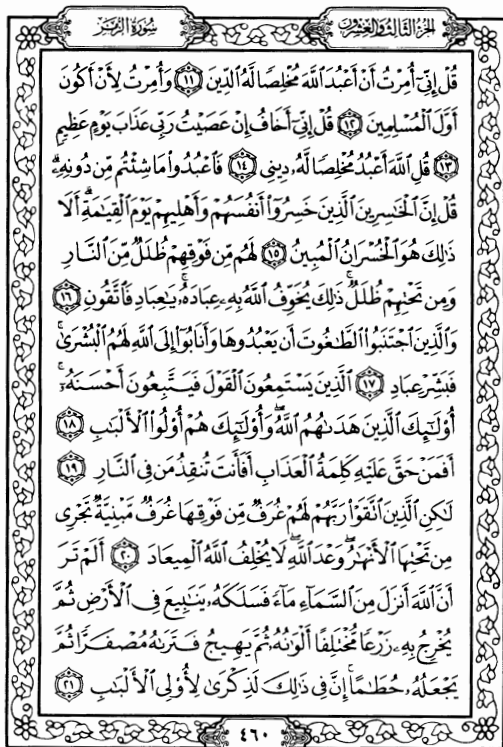 الجزء الثالث والعشرون
سورة الزمر
قُلْ إِنِّىٓ أُمِرْتُ أَنْ أَعْبُدَ ٱللَّهَ مُخْلِصًا لَّهُ ٱلدِّينَ ١١ وَأُمِرْتُ لِأَنْ أَكُونَ
أَوَّلَ ٱلْمُسْلِمِينَ ١٢ قُلْ إِنِّىٓ أَخَافُ إِنْ عَصَيْتُ رَبِّى عَذَابَ يَوْمٍ عَظِيمٍ
١٣ قُلِ ٱللَّهَ أَعْبُدُ مُخْلِصًا لَّهُۥ دِينِى ١٤ فَٱعْبُدُوا۟ مَا شِئْتُم مِّن دُونِهِۦ ۗ
قُلْ إِنَّ ٱلْخَٰسِرِينَ ٱلَّذِينَ خَسِرُوٓا۟ أَنفُسَهُمْ وَأَهْلِيهِمْ يَوْمَ ٱلْقِيَٰمَةِ ۗ أَلَا
ذَٰلِكَ هُوَ ٱلْخُسْرَانُ ٱلْمُبِينُ ١٥ لَهُم مِّن فَوْقِهِمْ ظُلَلٌ مِّنَ ٱلنَّارِ
وَمِن تَحْتِهِمْ ظُلَلٌ ۚ ذَٰلِكَ يُخَوِّفُ ٱللَّهُ بِهِۦ عِبَادَهُۥ ۚ يَٰعِبَادِ فَٱتَّقُونِ ١٦
وَٱلَّذِينَ ٱجْتَنَبُوا۟ ٱلطَّٰغُوتَ أَن يَعْبُدُوهَا وَأَنَابُوٓا۟ إِلَى ٱللَّهِ لَهُمُ ٱلْبُشْرَىٰ ۚ
فَبَشِّرْ عِبَادِ ١٧ ٱلَّذِينَ يَسْتَمِعُونَ ٱلْقَوْلَ فَيَتَّبِعُونَ أَحْسَنَهُۥٓ ۚ
أُو۟لَٰٓئِكَ ٱلَّذِينَ هَدَىٰهُمُ ٱللَّهُ ۖ وَأُو۟لَٰٓئِكَ هُمْ أُو۟لُوا۟ ٱلْأَلْبَٰبِ ١٨
أَفَمَنْ حَقَّ عَلَيْهِ كَلِمَةُ ٱلْعَذَابِ أَفَأَنتَ تُنقِذُ مَن فِى ٱلنَّارِ ١٩
لَٰكِنِ ٱلَّذِينَ ٱتَّقَوْا۟ رَبَّهُمْ لَهُمْ غُرَفٌ مِّن فَوْقِهَا غُرَفٌ مَّبْنِيَّةٌ تَجْرِى
مِن تَحْتِهَا ٱلْأَنْهَٰرُ ۖ وَعْدَ ٱللَّهِ ۖ لَا يُخْلِفُ ٱللَّهُ ٱلْمِيعَادَ ٢٠ أَلَمْ تَرَ
أَنَّ ٱللَّهَ أَنزَلَ مِنَ ٱلسَّمَآءِ مَآءً فَسَلَكَهُۥ يَنَٰبِيعَ فِى ٱلْأَرْضِ ثُمَّ
يُخْرِجُ بِهِۦ زَرْعًا مُّخْتَلِفًا أَلْوَٰنُهُۥ ثُمَّ يَهِيجُ فَتَرَىٰهُ مُصْفَرًّا ثُمَّ
يَجْعَلُهُۥ حُطَٰمًا ۚ إِنَّ فِى ذَٰلِكَ لَذِكْرَىٰ لِأُو۟لِى ٱلْأَلْبَٰبِ ٢١
٤٦٠